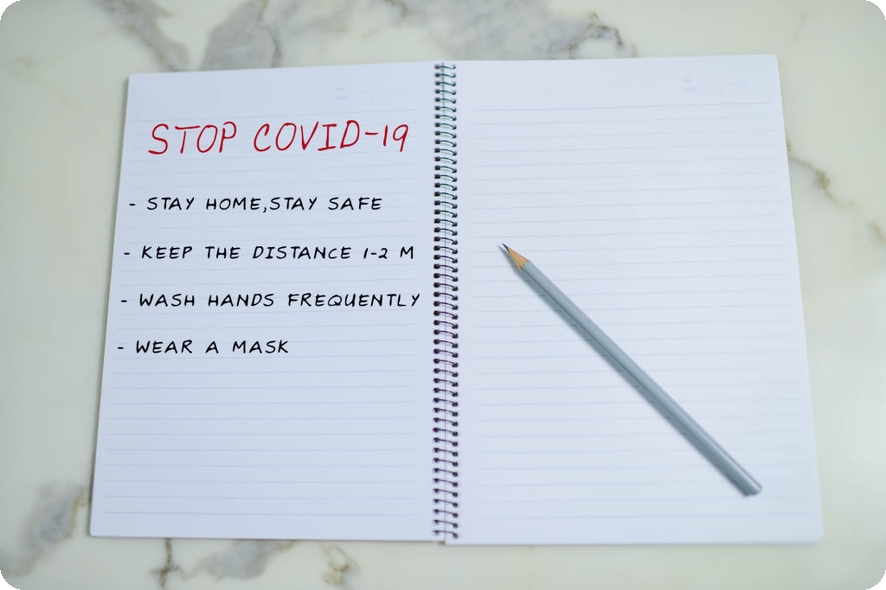 STOP COVID-19
- STAY HOME,STAY SAFE
- KEEP THE DISTANCE 1-2 M
- WASH HANDS FREQUENTLY
- WEAR A MASK